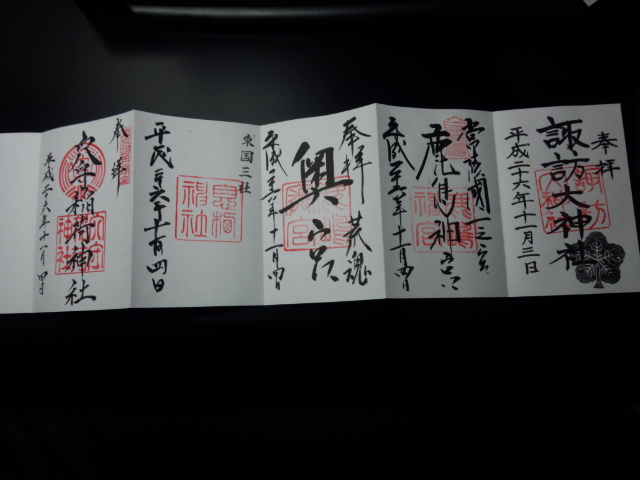 奉拝
諏訪大神社
諏訪大神社
平成二十六年十一月三日
常陸国一之宮
鹿島神宮
鹿島神宮
平成二十六年十一月四日
奉拝 荒魂
奥宮
平成二十六年十一月四日
東国三社
息栖神社
平成二十六年十一月四日
奉拝
稲荷神社
平成二十六年十一月四日